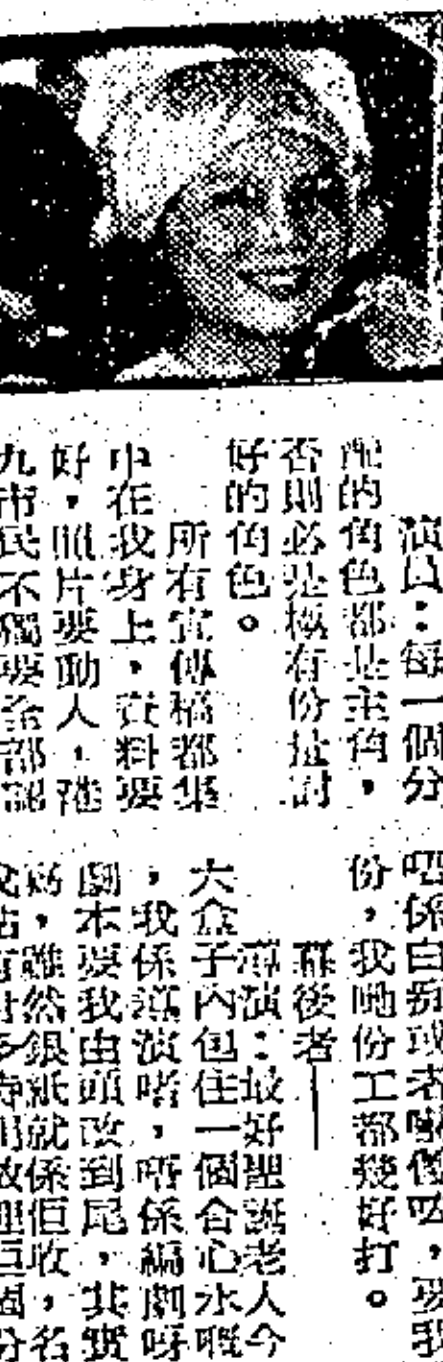 演員：每一個分
配的角色都是主角，
否則必是極有份量討
好的角色。
所有宣傳稿都集
中在我身上，資料要
好，照片要動人，港
九市民不獨要全部認
唔係白痴或者
份，我哋份工都幾好打。
幕後者——
導演：最好聖誕老人今
大盒子內包住一個合心水嘅
，我係導演啫，唔係編劇呀
劇本要我由頭改到尾，其實
，雖然銀紙就係佢收，名